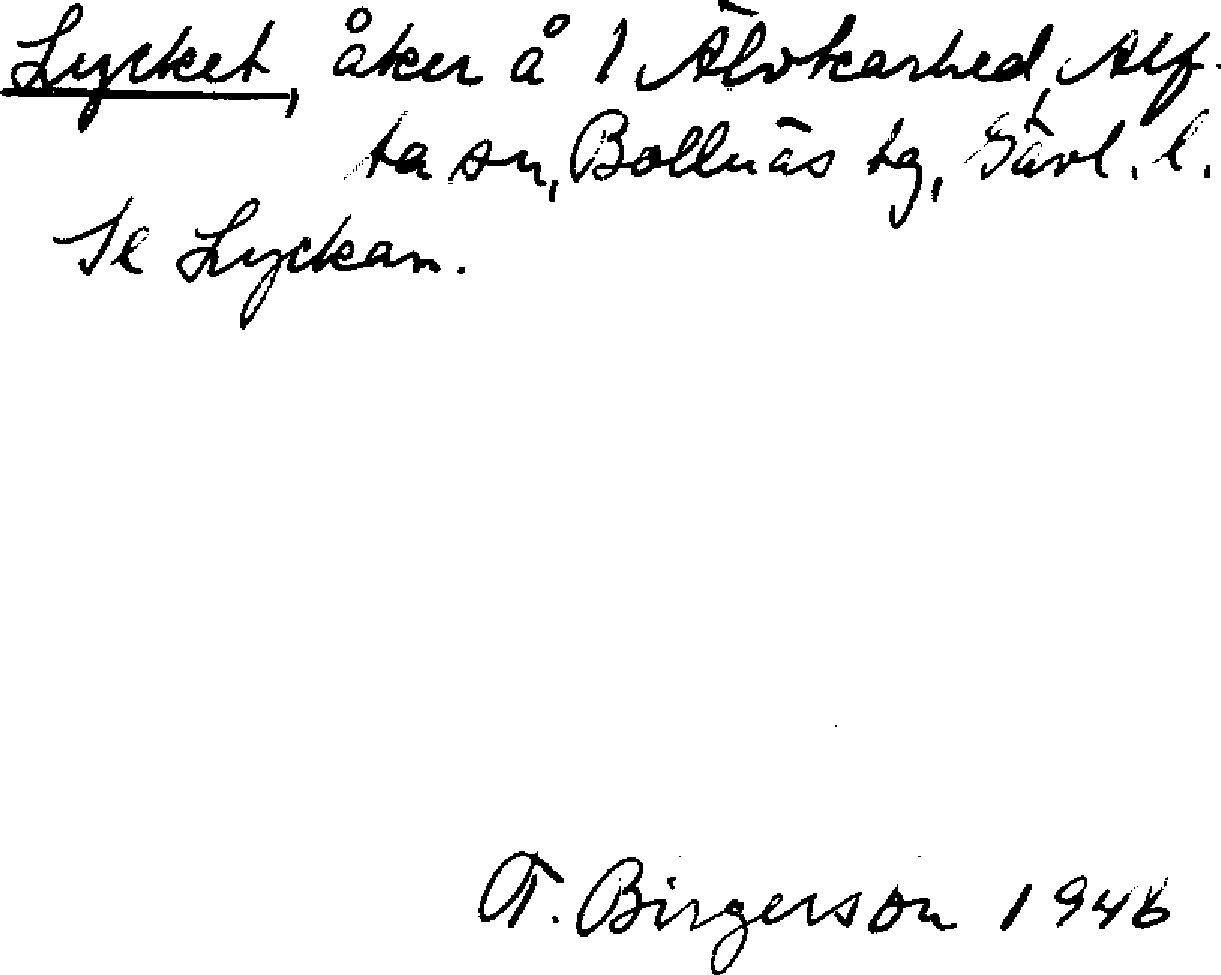 Lycket, åker å 1 Älvkarhed, Alf-
ta sn, Bollnäs tg, Gävl. l.
Se Lyckan.
T. Birgerson 1946